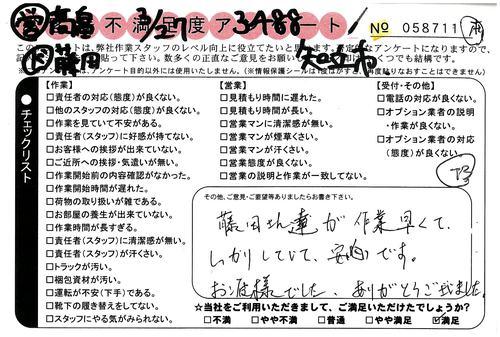 営 高畠 不満足度アンケート 3/27 3A88 № 058711
このアンケートは、弊社作業スタッフのレベル向上に役立てたいと思います。
藤田 知内市
チェックリスト
【作業】
□責任者の対応(態度)が良くない。
□他のスタッフの対応(態度)が良くない。
□作業を見ていて不安がある。
□責任者(スタッフ)に好感が持てない。
□お客様への挨拶が出来ていない。
□ご近所への挨拶・気遣いが無い。
□作業開始前の内容確認がなかった。
□作業開始時間が遅れた。
□荷物の取り扱いが雑である。
□お部屋の養生が出来ていない。
□作業時間が長すぎる。
□責任者(スタッフ)に清潔感が無い。
□責任者(スタッフ)が汗くさい。
□トラックが汚い。
□梱包資材が汚い。
□運転が不安(下手)である。
□靴下の履き替えをしてない。
□スタッフにやる気がみられない。
【営業】
□見積もり時間に遅れた。
□見積もり時間が長い。
□営業マンに清潔感が無い。
□営業マンが煙草くさい。
□営業マンが汗くさい。
□営業態度が良くない。
□営業の説明と作業が一致してない。
【受付・その他】
□電話の対応が良くない。
□オプション業者の説明
・作業が良くない。
□オプション業者の対応
(態度)が良くない。
その他、ご意見・ご要望等ありましたらお書き下さい。
藤田さん達が作業早くて、
しっかりしてて、安心です。
お疲れ様でした、ありがとうございました。
☆当社をご利用いただきまして、ご満足いただけたでしょうか?
□不満 □やや不満 □普通 □やや満足 ☑満足